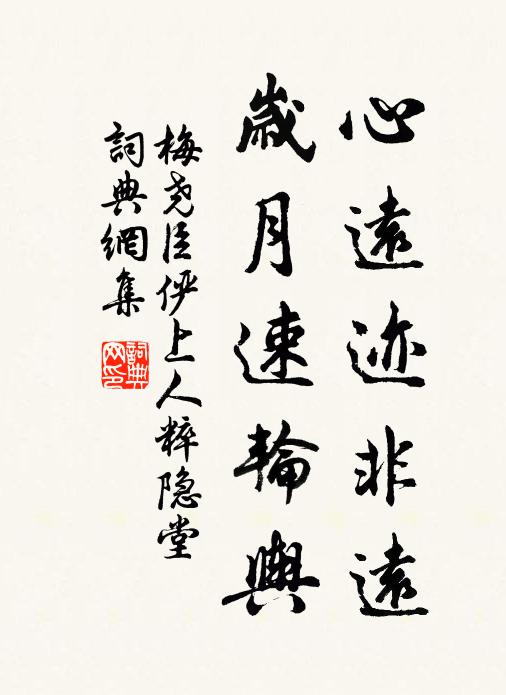 心遠迹非遠
歲月速輪輿
梅尧臣俨上人粹隐堂
詞典網集
詞典网印